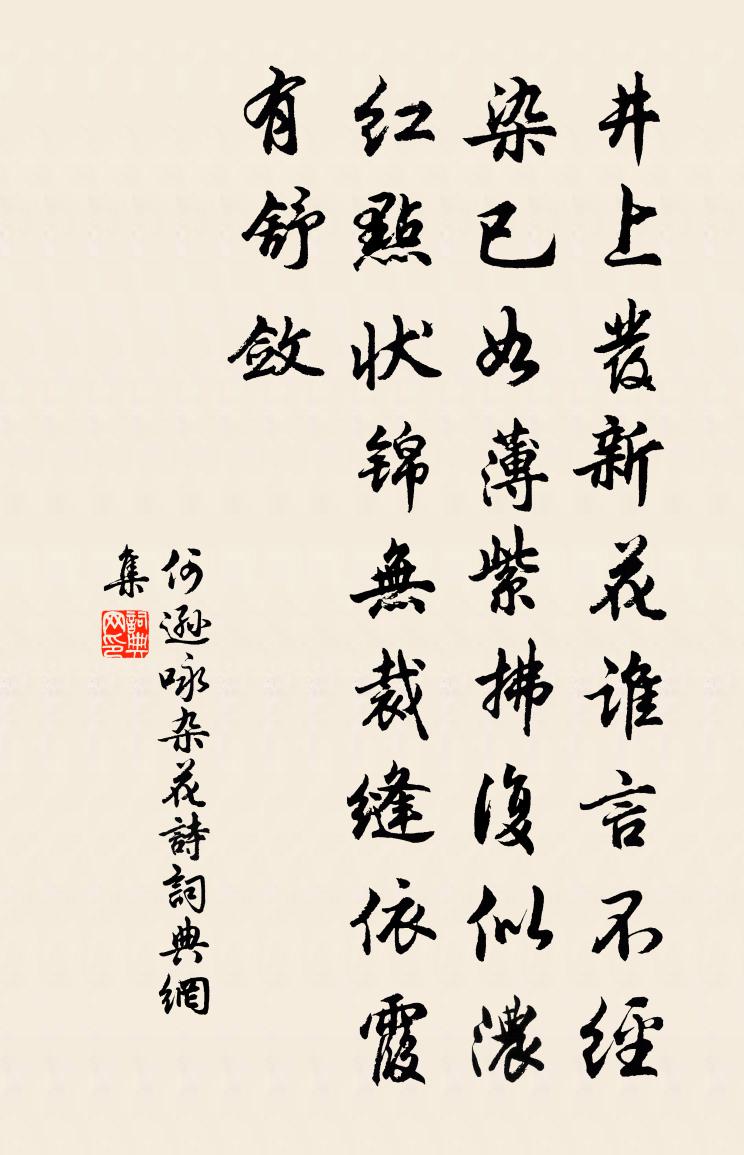 井上發新花誰言不經
染已如薄紫拂復似濃
紅點狀錦無裁縫依霞
有舒斂
何遜咏杂花詩詞典網
集
詞典网印